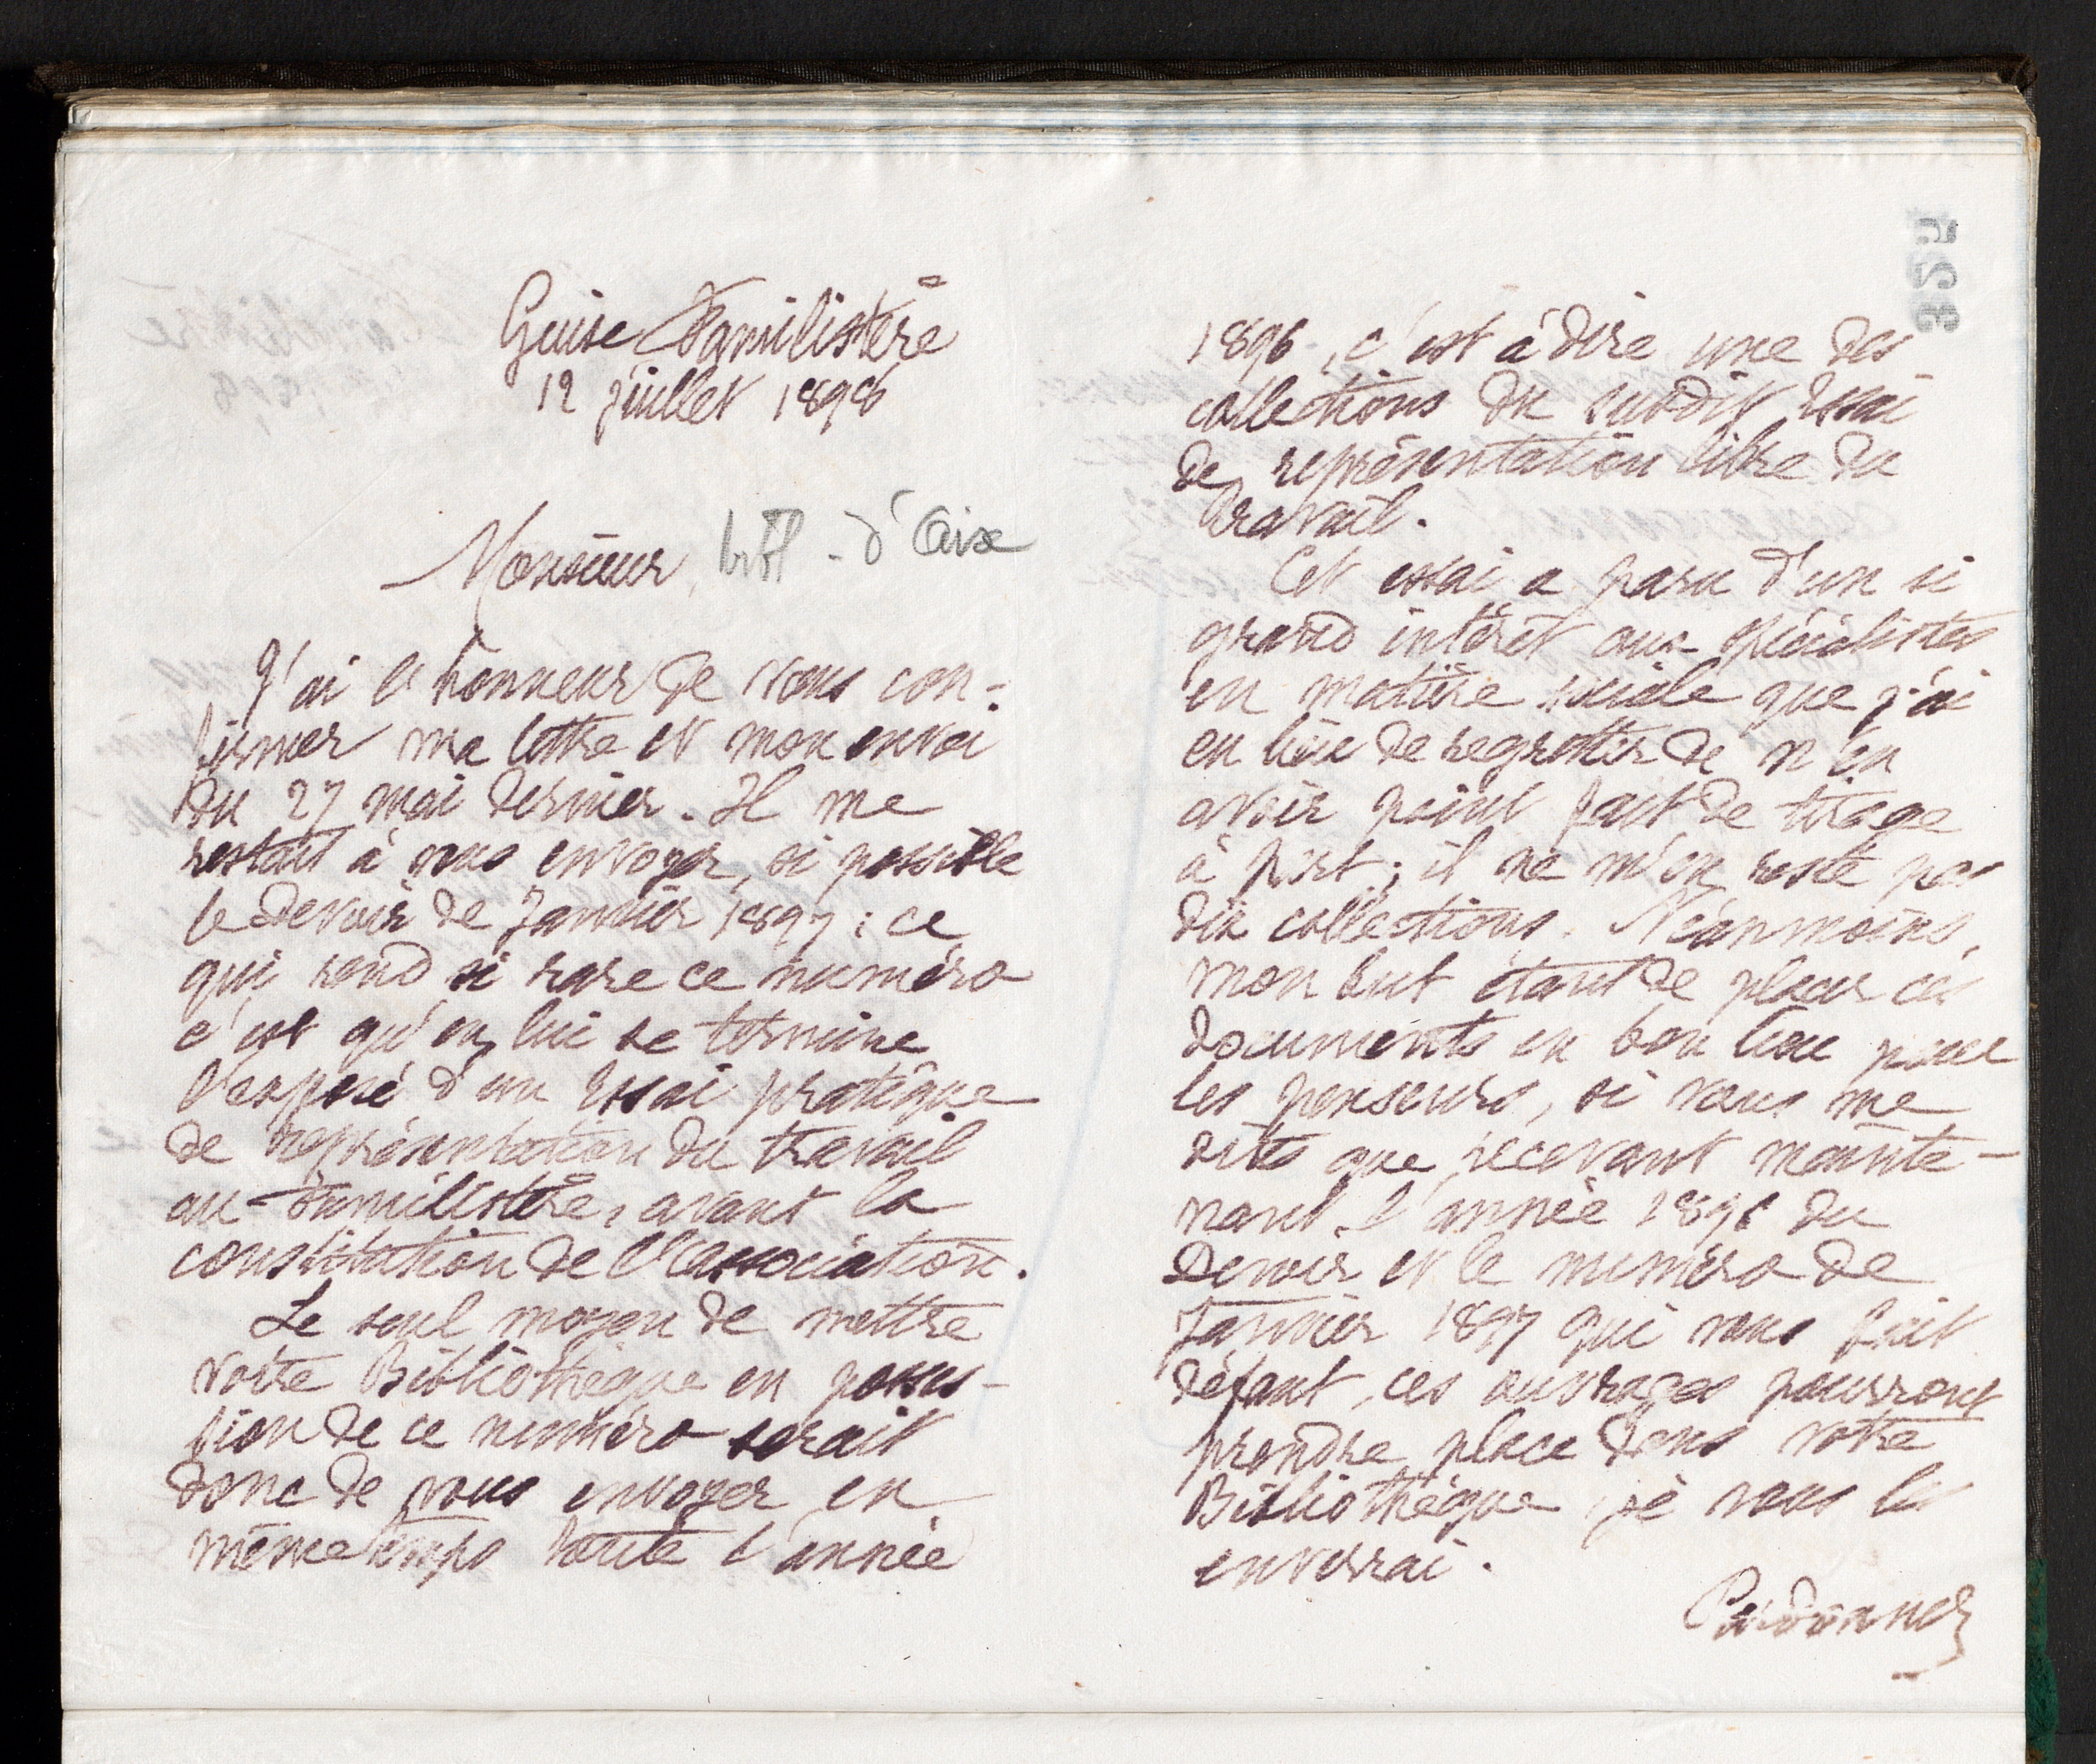 Guise Familistère
12 juillet 1898
Monsieur, bibl. d'Aix
J'ai l'honneur de vous con-
firmer ma lettre et mon envoi
du 27 mai dernier. Il me
restait à vous envoyer, si possible
le Devoir de Janvier 1897 : ce
qui rend si rare ce numéro
c'est qu'en lui se termine
l'exposé d'un Essai pratique
de représentation du travail
au Familistère, avant la
constitution de l'association.
Le seul moyen de mettre
votre Bibliothèque en posses-
sion de ce numéro serait
donc de vous envoyer en
même temps toute l'année
354
1896, c'est à dire une des
collections du susdit Essai
de représentation libre du
travail.
Cet essai a paru d'un si
grand intérêt aux spécialistes
en matière sociale que j'ai
eu lieu de regretter de n'en
avoir point fait de tirage
à part ; il ne m'en reste pas
dix collections. Néanmoins,
mon but étant de placer ces
documents en bon lieu pour
les penseurs, si vous me
dites que, recevant mainte-
nant l'année 1896 du
Devoir et le numéro de
Janvier 1897 qui vous fait
défaut, ces ouvrages pourront
prendre place dans votre
Bibliothèque, je vous les
enverrai.
Pardonnez